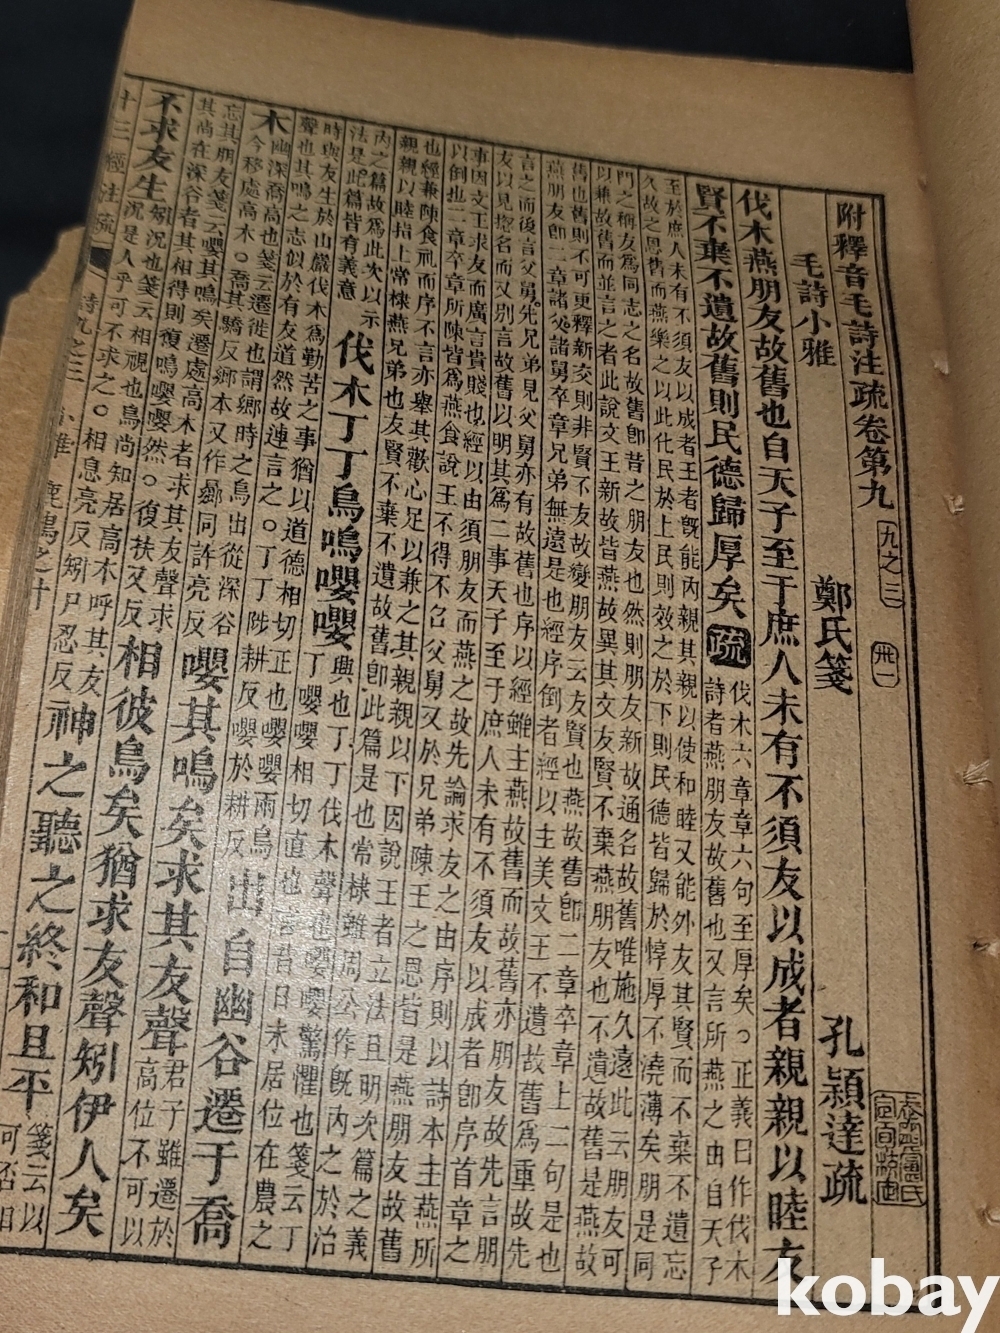 附釋音毛詩注疏卷第九 九之三 卅一
毛詩小雅 鄭氏箋 孔穎達疏
伐木燕朋友故舊也自天子至于庶人未有不須友以成者親親以睦友
賢不棄不遺故舊則民德歸厚矣 疏
伐木六章章六句至厚矣。正義曰作伐木
詩者燕朋友故舊也又言所燕之由自天子
至於庶人未有不須友以成者王者既能內親其親以使和睦又能外友其賢而不棄不遺忘
久故之恩舊而燕樂之以此化民於上民則效之於下則民德皆歸於惇厚不澆薄矣朋是同
門之稱友為同志之名故舊即昔之朋友也然則朋友新故通名故舊唯施久遠此云朋友可
以兼故舊而並言之者此說文王新故皆燕故異其文友賢不棄燕朋友也不遺故舊是燕故
舊也舊則不可更釋新交則非賢不友故變朋友云友賢也燕故舊即二章卒章上二句是也
燕朋友即二章諸父諸舅卒章兄弟無遠是也經序倒者經以主美文王不遺故舊為重故先
言之而後言父舅先兄弟見父舅亦有故舊也序以經雖主燕故舊而故舊亦朋友故先言朋
友以見揔名而又別言故舊以明其為二事天子至于庶人未有不須友以成者即序首章之
事因文王求友而廣言貴賤也經以由須朋友而燕之故先論求友之由序則以詩本主燕所
以倒也二章卒章所陳皆為燕食說王不得不召父舅又於兄弟陳王之恩皆是燕朋友故舊
也經兼陳食祀而序不言亦舉其歡心足以兼之其親親以下因說王者立法且明次篇之義
親親以睦指上常棣燕兄弟也友賢不棄不遺故舊即此篇是也常棣雖周公作既內之於治
內之篇故為此次以示
法是此篇皆有義意
伐木丁丁鳥鳴嚶嚶
興也丁丁伐木聲也嚶嚶驚懼也箋云丁
丁嚶嚶相切直也言昔日未居位在農之
時與友生於山巖伐木為勤苦之事猶以道德相切正也嚶嚶兩鳥
聲也其鳴之志似於有友道然故連言之。丁丁陟耕反嚶於耕反
出自幽谷遷于喬
木
幽深喬高也箋云遷徙也謂鄉時之鳥出從深谷
今移處高木。喬其驕反鄉本又作曏同許亮反
嚶其鳴矣求其友聲
君子雖遷於
高位不可以
忘其朋友箋云嚶其鳴矣遷處高木者求其友聲求
其尚在深谷者其相得則復鳴嚶嚶然。復扶又反
相彼鳥矣猶求友聲矧伊人矣
不求友生
矧況也箋云相視也鳥尚知居高木呼其友
況是人乎可不求之。相息亮反矧尸忍反
神之聽之終和且平
箋云以
可否
十三經注疏 詩九之三 小雅 鹿鳴之什
kobay